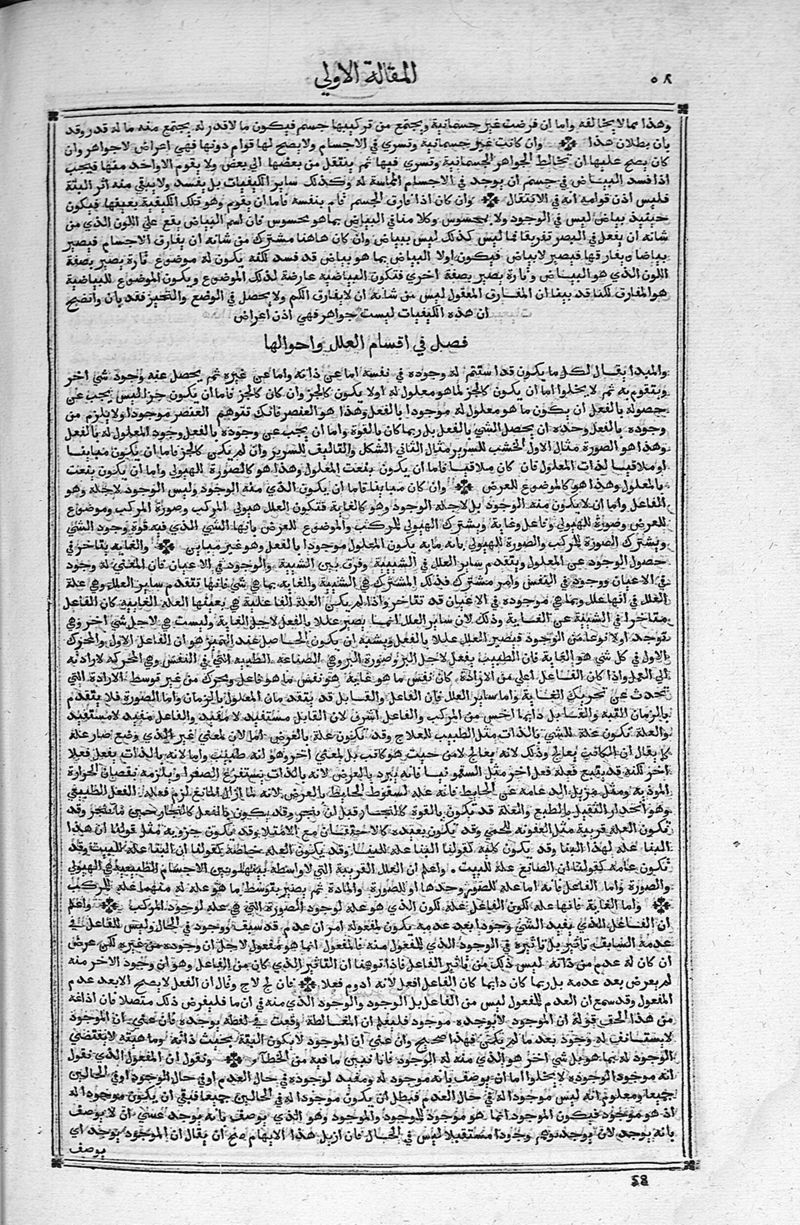 المقالة الاولي
٥٨
وهذا مما لا يخالفه واما ان فرضت غير جسمانية ويجتمع من تركيبها جسم فيكون ما لا قدر له يجتمع منه ما له قدر وقد
بان بطلان هذا وان كانت غير جسمانية وتسري في الاجسام ولا يصح لها قوام دونها فهي اعراض لا جواهر وان
كان يصح عليها ان تخالط الجواهر الجسمانية وتسري فيها ثم ينتقل من بعضها الي بعض ولا يقوم الا واحد منها فيجب
اذا فسد البياض في جسم ان يوجد في الاجسام المماسة له وكذلك ساير الكيفيات بل يفسد ولا يبقي منه اثر البتة
فليس اذن قوامه انه في الانتقال وان كان اذا فارق الجسم قام بنفسه فاما ان يقوم وهو تلك الكيفية بعينها فيكون
حينيذ بياض ليس في الوجود ولا بمحسوس وكلامنا في البياض بما هو محسوس فان اسم البياض يقع علي اللون الذي من
شانه ان يفعل في البصر تفريقا فما ليس كذلك ليس ببياض وان كان هاهنا مشترك من شانه ان يفارق الاجسام فيصير
بياضا ويفارقها فيصير لا بياض فيكون اولا البياض بما هو بياض قد فسد لكنه يكون له موضوع تارة يصير بصفة
اللون الذي هو البياض وتارة يصير بصفة اخري فتكون البياضية عارضة لذلك الموضوع ويكون الموضوع للبياضية
هو المفارق لكنا قد بينا ان المفارق المعقول ليس من شانه ان لا يفارق الكم ولا يحصل في الوضع والتحيز فقد بان واتضح
ان هذه الكيفيات ليست جواهر فهي اذن اعراض
فصل في اقسام العلل واحوالها
والمبدا يقال لكل ما يكون قد استتم له وجوده في نفسه اما عن ذاته واما عن غيره ثم يحصل عنه وجود شي اخر
ويتقوم به ثم لا يخلوا اما ان يكون كالجز لما هو معلول له او لا يكون كالجز وان كان كالجز فاما ان يكون جز اليس يجب عن
حصوله بالفعل ان يكون ما هو معلول له موجودا بالفعل وهذا هو العنصر فانك تتوهم العنصر موجودا ولا يلزم من
وجوده بالفعل وحده ان يحصل الشي بالفعل بل ربما كان بالقوة واما ان يجب عن وجوده بالفعل وجود المعلول له بالفعل
وهذا هو الصورة مثال الاول الخشب للسرير مثال الثاني الشكل والتاليف للسرير وان لم يكن كالجز فاما ان يكون مباينا
او ملاقيا لذات المعلول فان كان ملاقيا فاما ان يكون ينعت المعلول وهذا هو كالصورة للهيولي واما ان يكون ينعت
بالمعلول وهذا هو كالموضوع للعرض وان كان مباينا فاما ان يكون الذي منه الوجود وليس الوجود لاجله وهو
الفاعل واما ان لا يكون منه الوجود بل لاجله الوجود وهو كالغاية فتكون العلل هيولي المركب وصورة المركب وموضوع
للعرض وصورة للهيولي وفاعل وغاية ويشترك الهيولي للمركب والموضوع للعرض بانها الشي الذي فيه قوة وجود الشي
ويشترك الصورة للمركب والصورة للهيولي بانه ما به يكون المعلول موجودا بالفعل وهو غير مباين والغاية يتاخر في
حصول الوجود عن المعلول ويتقدم ساير العلل في الشيية وفرق بين الشيية والوجود في الاعيان فان المعني له وجود
في الاعيان ووجود في النفس وامر مشترك فذلك المشترك هي الشيية والغاية بما هي شي فانها تتقدم ساير العلل وهي علة
العلل في انها علل وبما هي موجودة في الاعيان قد تتاخر واذا لم يكن العلة الفاعلية هي بعينها العلة الغايية كان الفاعل
متاخرا في الشيية عن الغاية وذلك لان ساير العلل انما يصير عللا بالفعل لاجل الغاية وليست هي لاجل شي اخر وهي
توجد اولا نوعا من الوجود فيصير العلل عللا بالفعل ويشبه ان يكون الحاصل عند التمييز هو ان الفاعل الاول والمحرك
الاول في كل شي هو الغاية فان الطبيب يفعل لاجل البر وصورة البر هي الصناعة الطبية التي في النفس وهي المحركة لارادته
الي العمل واذا كان الفاعل اعلي من الارادة كان نفس ما هو غاية هو نفس ما هو فاعل ويحرك من غير توسط الارادة التي
تحدث عن تحريك الغاية واما ساير العلل فان الفاعل والقابل قد يتقدمان المعلول بالزمان واما الصورة فلا يتقدم
بالزمان البتة والقابل دايما اخس من المركب والفاعل اشرف لان القابل مستفيد لا مفيد والفاعل مفيد لا مستفيد
والعلة تكون علة للشي بالذات مثل الطبيب للعلاج وقد تكون علة بالعرض اما لان لمعني غير الذي وضع صار علة
كما يقال ان الكاتب يعالج وذلك لانه يعالج لا من حيث هو كاتب بل لمعني اخر وهو انه طبيب واما لانه بالذات يفعل فعلا
اخر لكنه قد يتبع فعله فعل اخر مثل السقمونيا فانه يبرد بالعرض لانه بالذات يستفرغ الصفرا ويلزمه نقصان الحرارة
الموذية ومثل مزيل الدعامة عن الحايط فانه علة لسقوط الحايط بالعرض لانه لما ازال المانع لزم فعله الفعل الطبيعي
وهو انحدار الثقيل بالطبع والعلة قد يكون بالقوة كالنجار قبل ان ينجر وقد يكون بالفعل كالنجار حين ما ينجر وقد
تكون العلة قريبة مثل العفونة للحمي وقد تكون بعيدة كالاحتقان مع الامتلا وقد تكون جزوية مثل قولنا ان هذا
البنا علة لهذا البنا وقد يكون كلية كقولنا البنا علة للبنا وقد يكون العلة خاصة كقولنا ان البنا علة للبيت وقد
تكون عامة كقولنا ان الصانع علة للبيت واعلم ان العلل القريبة التي لا واسطة بينها وبين الاجسام الطبيعية هي الهيولي
والصورة واما الفاعل فانه اما علة للصورة وحدها او للصورة والمادة ثم يصير بتوسط ما هو علة له منهما علة للمركب
واما الغاية فانها علة لكون الفاعل علة لكون الذي هو علة لوجود الصورة التي هي علة لوجود المركب واعلم
ان الفاعل الذي يفيد الشي وجودا بعد عدمه يكون لمفعوله امران عدم قد سبق ووجود في الحال وليس للفاعل في
عدمه السابق تاثير بل تاثيره في الوجود الذي للمفعول منه فالمفعول انما هو مفعول لاجل ان وجوده من غيره لكن عرض
ان كان له عدم من ذاته ليس ذلك من تاثير الفاعل فاذا توهمنا ان التاثير الذي كان من الفاعل وهو ان وجود الاخر منه
لم يعرض بعد عدمه بل ربما كان دايما كان الفاعل افعل لانه ادوم فعلا فان لج لاج وقال ان الفعل لا يصح الا بعد عدم
المفعول وقد سمع ان العدم للمفعول ليس من الفاعل بل الوجود والوجود الذي منه في ان ما فليفرض ذلك متصلا فان ازاغه
من هذا الحق قوله ان الموجود لا يوجده موجود فليعلم ان المغالطة وقعت في لفظة يوجده فان عني ان الموجود
لا يستانف له وجود بعد ما لم يكن فهذا صحيح وان عني ان الموجود لا يكون البتة بحيث ذاته وماهيته لا يقتضي
الوجود له بما هو بل شي اخر هو الذي منه له الوجود فانا نبين ما فيه من الخطا ونقول ان المفعول الذي نقول
انه موجود الموجودة لا يخلوا اما ان يوصف بانه موجود له ومفيد لوجوده في حال العدم او في حال الوجود او في الحالين
جميعا ومعلوم انه ليس موجودا له في حال العدم فبطل ان يكون موجودا له في الحالين جميعا فبقي ان يكون موجودا له
اذ هو موجود فيكون الموجود انما هو موجود للموجود والموجود وهو الذي يوصف بانه يوجد عسي ان لا يوصف
بانه يوجد لان يوجد يوهم وجودا مستقبلا ليس في الحال فان ازيل هذا الابهام صح ان يقال ان الموجود يوجد اي
يوصف